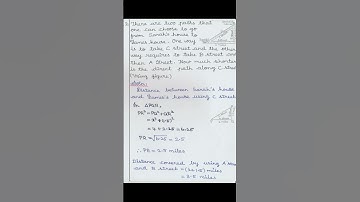 There are two paths that
one can choose to go
from Sarah's house to
James house. One way
is to take C street and the other
way requires to take B street and
then A Street. How much shorter
is the direct path along C street
(Using figure)
Distance between Sarah's house
and James's house using C street
In △PQR,
PR² = PQ² + QR²
PR = √6.25 = 2.5
∴ PR = 2.5 miles
Distance covered by using A street
and B street = (2+1.5) miles
= 3.5 miles